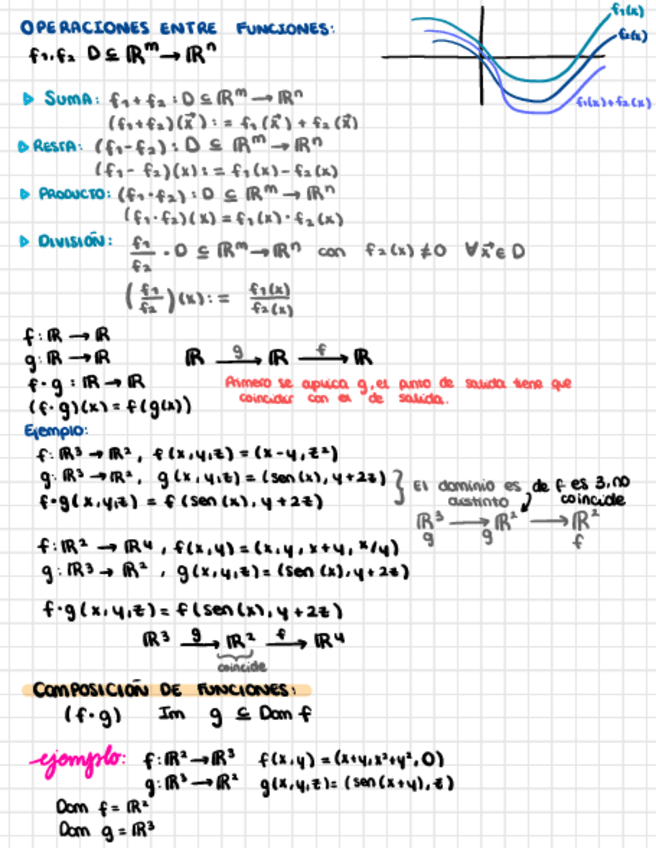 OPERACIONES ENTRE FUNCIONES:
f₁, f₂ D ⊆ ℝᵐ → ℝⁿ
f₁(x)
f₂(x)
f₁(x)+f₂(x)
▷ SUMA: f₁+f₂ : D ⊆ ℝᵐ → ℝⁿ
(f₁+f₂)(x⃗) := f₁(x⃗) + f₂(x⃗)
▷ RESTA: (f₁-f₂) : D ⊆ ℝᵐ → ℝⁿ
(f₁-f₂)(x) := f₁(x)-f₂(x)
▷ PRODUCTO: (f₁·f₂) : D ⊆ ℝᵐ → ℝⁿ
(f₁·f₂)(x) = f₁(x)·f₂(x)
▷ DIVISIÓN: f₁/f₂ · D ⊆ ℝᵐ → ℝⁿ con f₂(x) ≠ 0 ∀x⃗ ∈ D
(f₁/f₂)(x) := f₁(x)/f₂(x)
f: ℝ → ℝ
g: ℝ → ℝ
ℝ g→ ℝ f→ ℝ
f·g : ℝ → ℝ
(f·g)(x) = f(g(x))
Primero se aplica g, el punto de salida tiene que
coincidir con el de salida.
Ejemplo:
f: ℝ³ → ℝ², f(x,y,z) = (x-y, z²)
g: ℝ³ → ℝ², g(x,y,z) = (sen(x), y+2z)
f·g(x,y,z) = f(sen(x), y+2z)
} El dominio es de f es 3, no
distinto coincide
ℝ³ → ℝ² → ℝ²
g g f
f: ℝ² → ℝ⁴, f(x,y) = (x, y, x+y, x/y)
g: ℝ³ → ℝ², g(x,y,z) = (sen(x), y+2z)
f·g(x,y,z) = f(sen(x), y+2z)
ℝ³ g→ ℝ² f→ ℝ⁴
coincide
COMPOSICIÓN DE FUNCIONES:
(f·g) Im g ⊆ Dom f
ejemplo: f: ℝ² → ℝ³ f(x,y) = (x+y, x²+y², 0)
g: ℝ³ → ℝ² g(x,y,z) = (sen(x+y), z)
Dom f = ℝ²
Dom g = ℝ³